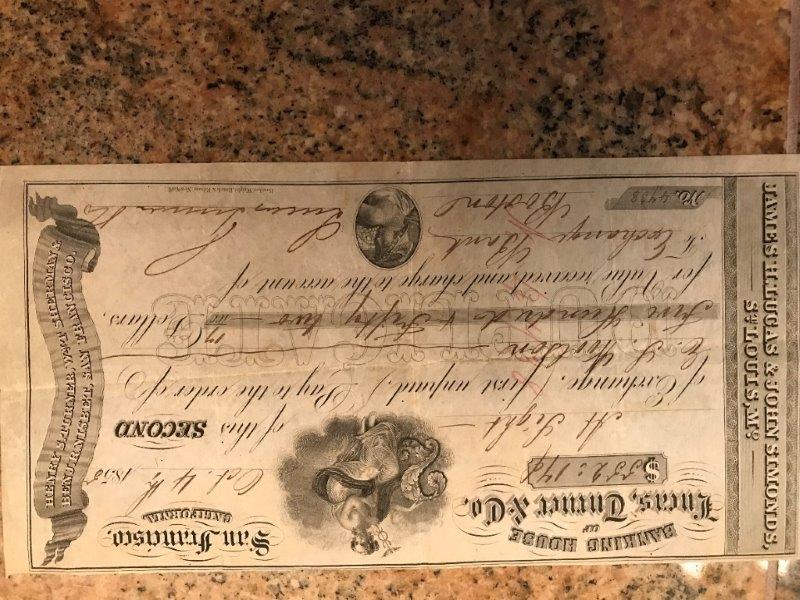 JAMES H. LUCAS & JOHN SIMONDS,
ST. LOUIS, MO.
BANKING HOUSE
OF
Lucas, Turner & Co.
San Francisco,
CALIFORNIA
$552:17/
Oct. 4th 1855
At Sight of this SECOND
of Exchange, (first unpaid,) Pay to the order of
Five Hundred & Fifty two 17/100 Dollars,
for Value received, and charge to the account of
To Exchange Bank
Boston
Lucas Turner & Co
No. 4738
HENRY S. TURNER, WM. T. SHERMAN &
BENJ. R. NISBET, SAN FRANCISCO.